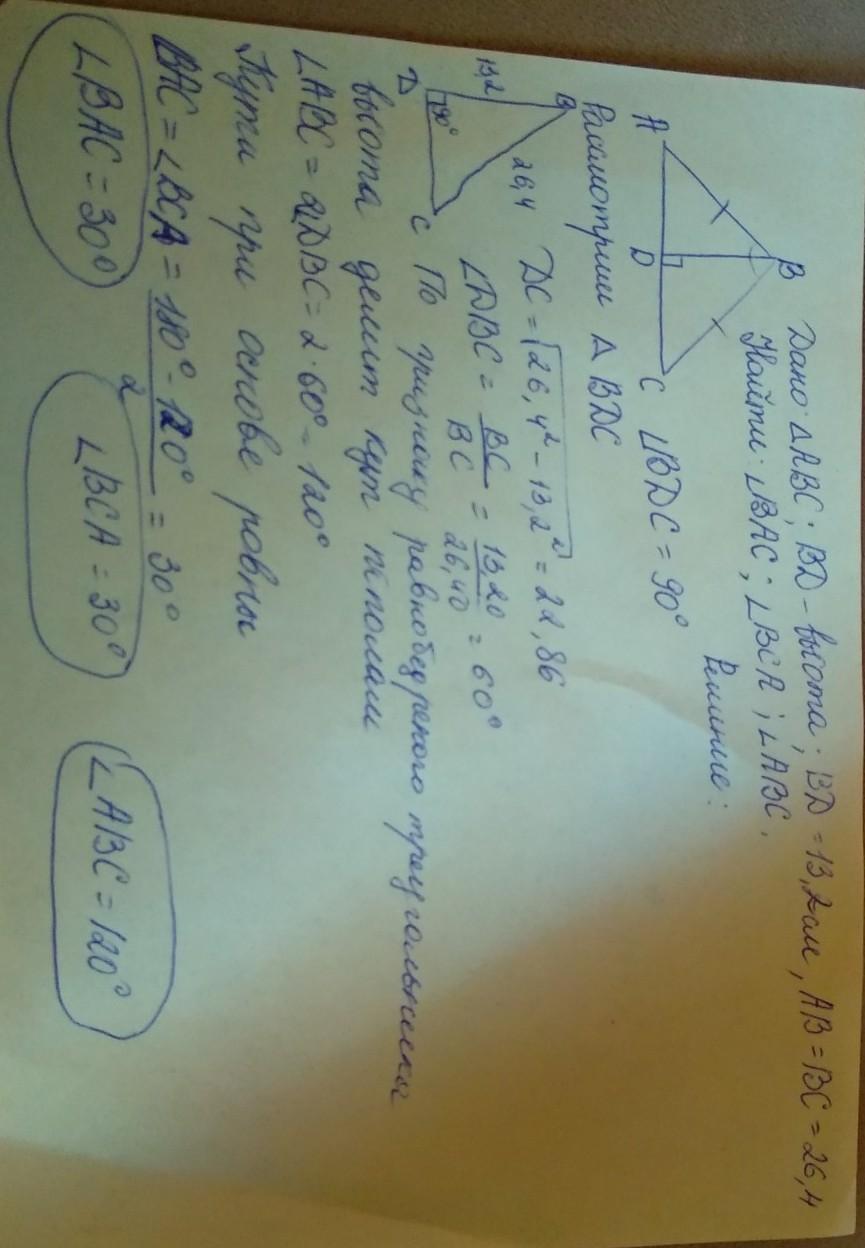 Дано: △ABC; BD - высота; BD = 13,2 см, AB = BC = 26,4
Найти: ∠BAC; ∠BCA; ∠ABC.
Решение:
A
B
D
C
∠BDC = 90°
Рассмотрим △ BDC
B
13,2
26,4
D
90°
C
DC = √26,4² - 13,2² = 22,86
∠DBC = BC/BC = 13,20/26,40 = 60°
По признаку равнобедреного треугольника
высота делит кут пополам
∠ABC = 2DBC = 2·60° = 120°
Кути при основе ровны
BAC = ∠BCA = 180° - 120°/2 = 30°
∠BAC = 30°
∠BCA = 30°
∠ABC = 120°